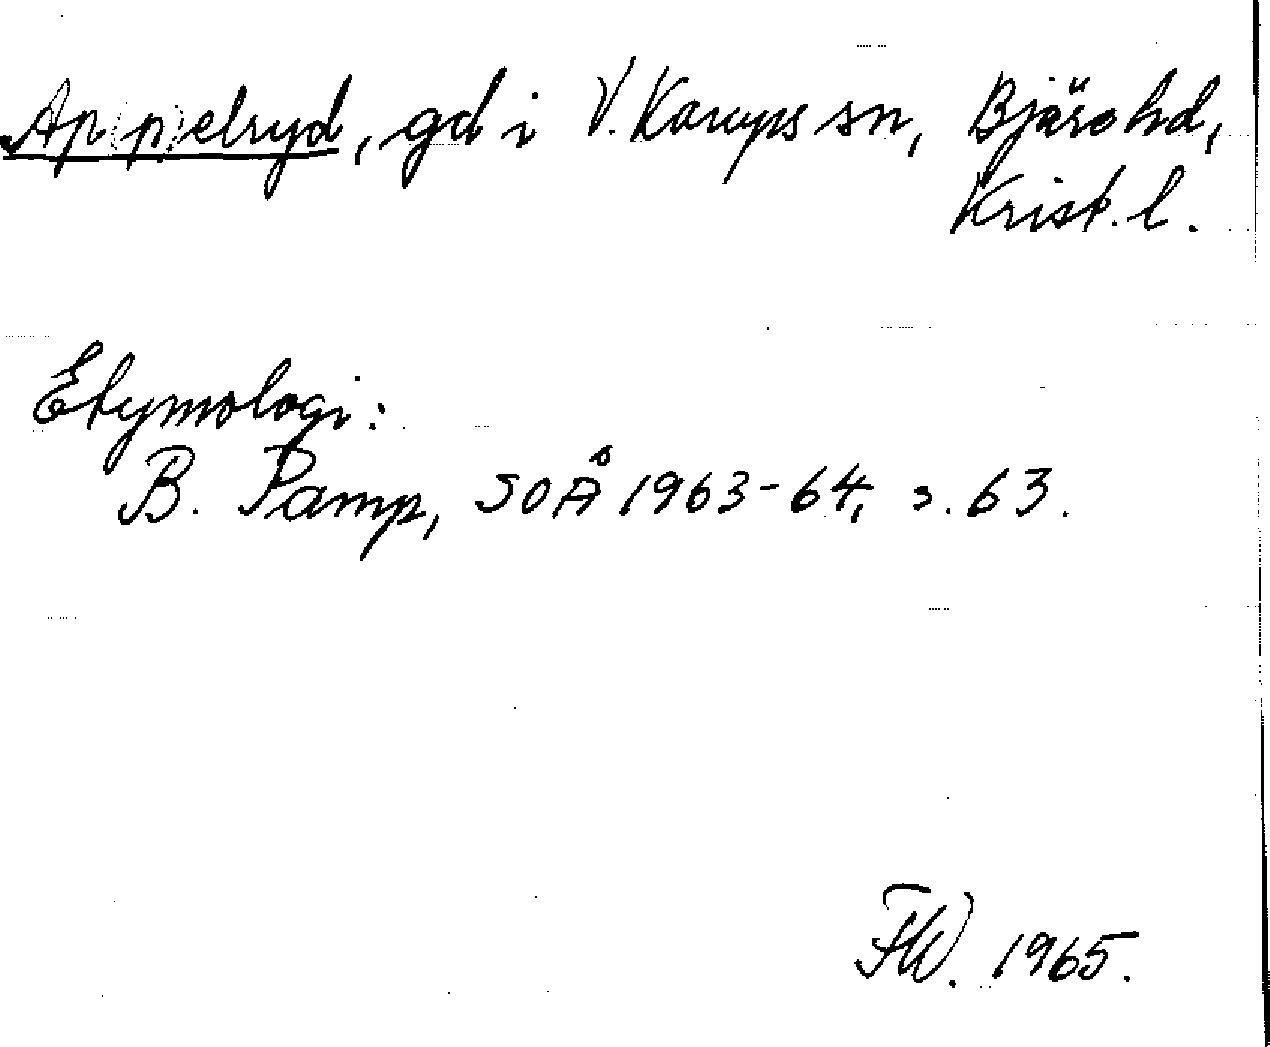 Ap(p)elryd, gd i V. Karups sn, Bjäre hd,
Krist. l.
Etymologi:
B. Pamp, SOÅ 1963-64, s. 63.
FW. 1965.